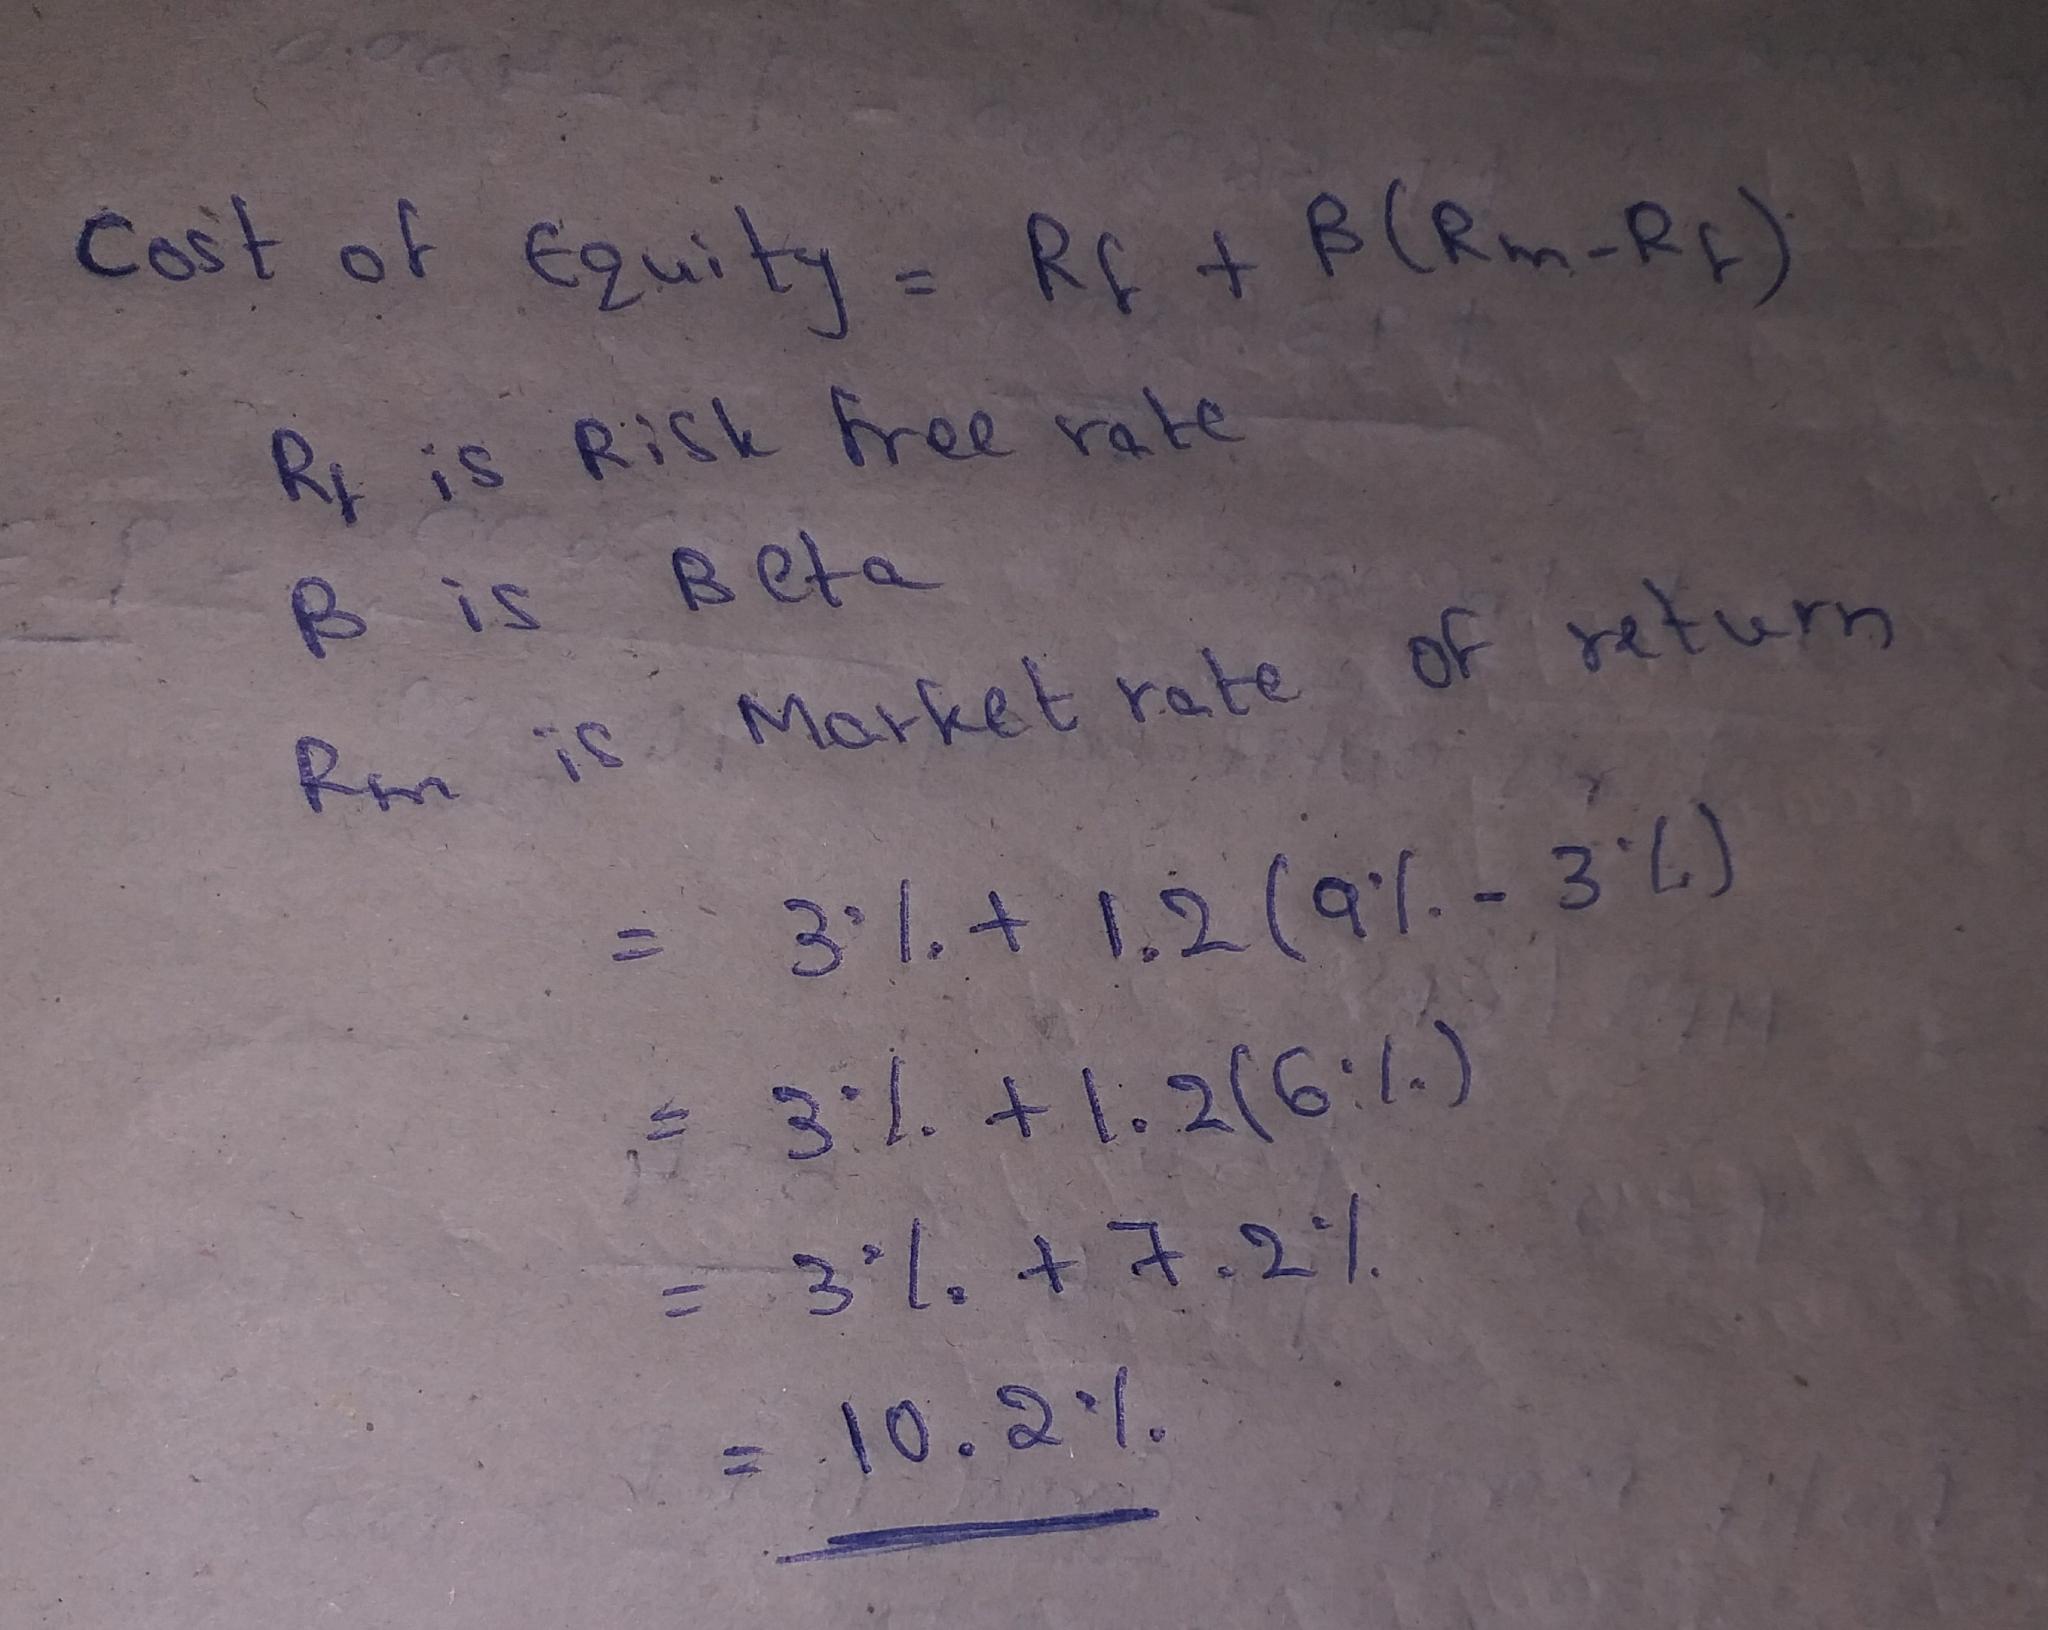 Cost of Equity = Rf + B(Rm-Rf)
Rf is Risk free rate
B is Beta
Rm is Market rate of return
= 3% + 1.2 (9% - 3%)
= 3% + 1.2(6%)
= 3% + 7.2%
= 10.2%